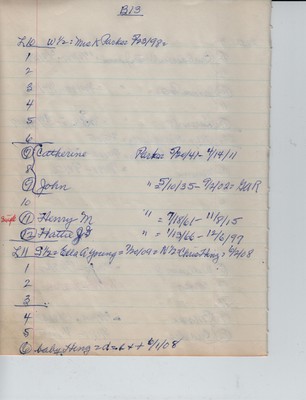 B13
L10 W½: Mrs K Parker 5/23/98 =
1
2
3
4
5
6
7 Catherine Parker 5/20/41 - 4/19/11
8
9 John " = 5/10/35 - 9/2/02 = GAR
10
11 Henry M " = 7/18/61 - 11/8/15
12 Hattie J " = 1/13/66 - 12/6/97
L11 S½ = Ella A Young = 7/20/09 = N½ Chris Heng = 6/2/08
1
2
3
4
5
6 baby Heng = d = 6/1/08